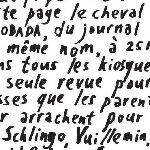 te page le cheval
OBADA, du journal
même nom, à 25
ns tous les kiosque
seule revue pour
sses que les parent
r arrachent pour
Schlingo, Vuillemin,